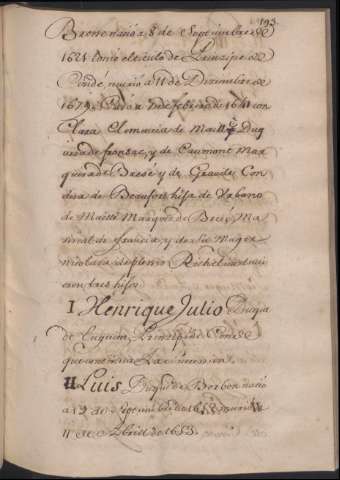 193.
nació a 8 de Septiembre de
1621 tomó el titulo de Principe de
Condé murió a 11 de Diziembre de
de febrero de 1641 con
Clara Clemencia de Maillé Du
quesa de fronsac, y de Caumont Mar
quesa de Bresé y de Graude Con
desa de Beaufort hija de Vrbano
de Maillé Marques de Bresé, Ma
riscal de francia y de su Muger
Nicolasa de Plesis Richelieu tuvi
eron tres hijos
I Henrique Julio Duque
de Enguien, Principe de Conde
que continua La Succession
II Luis Duque de Borbon nació
a 19 de Septiembre de 1652 murió
11 de Abril de 1653.